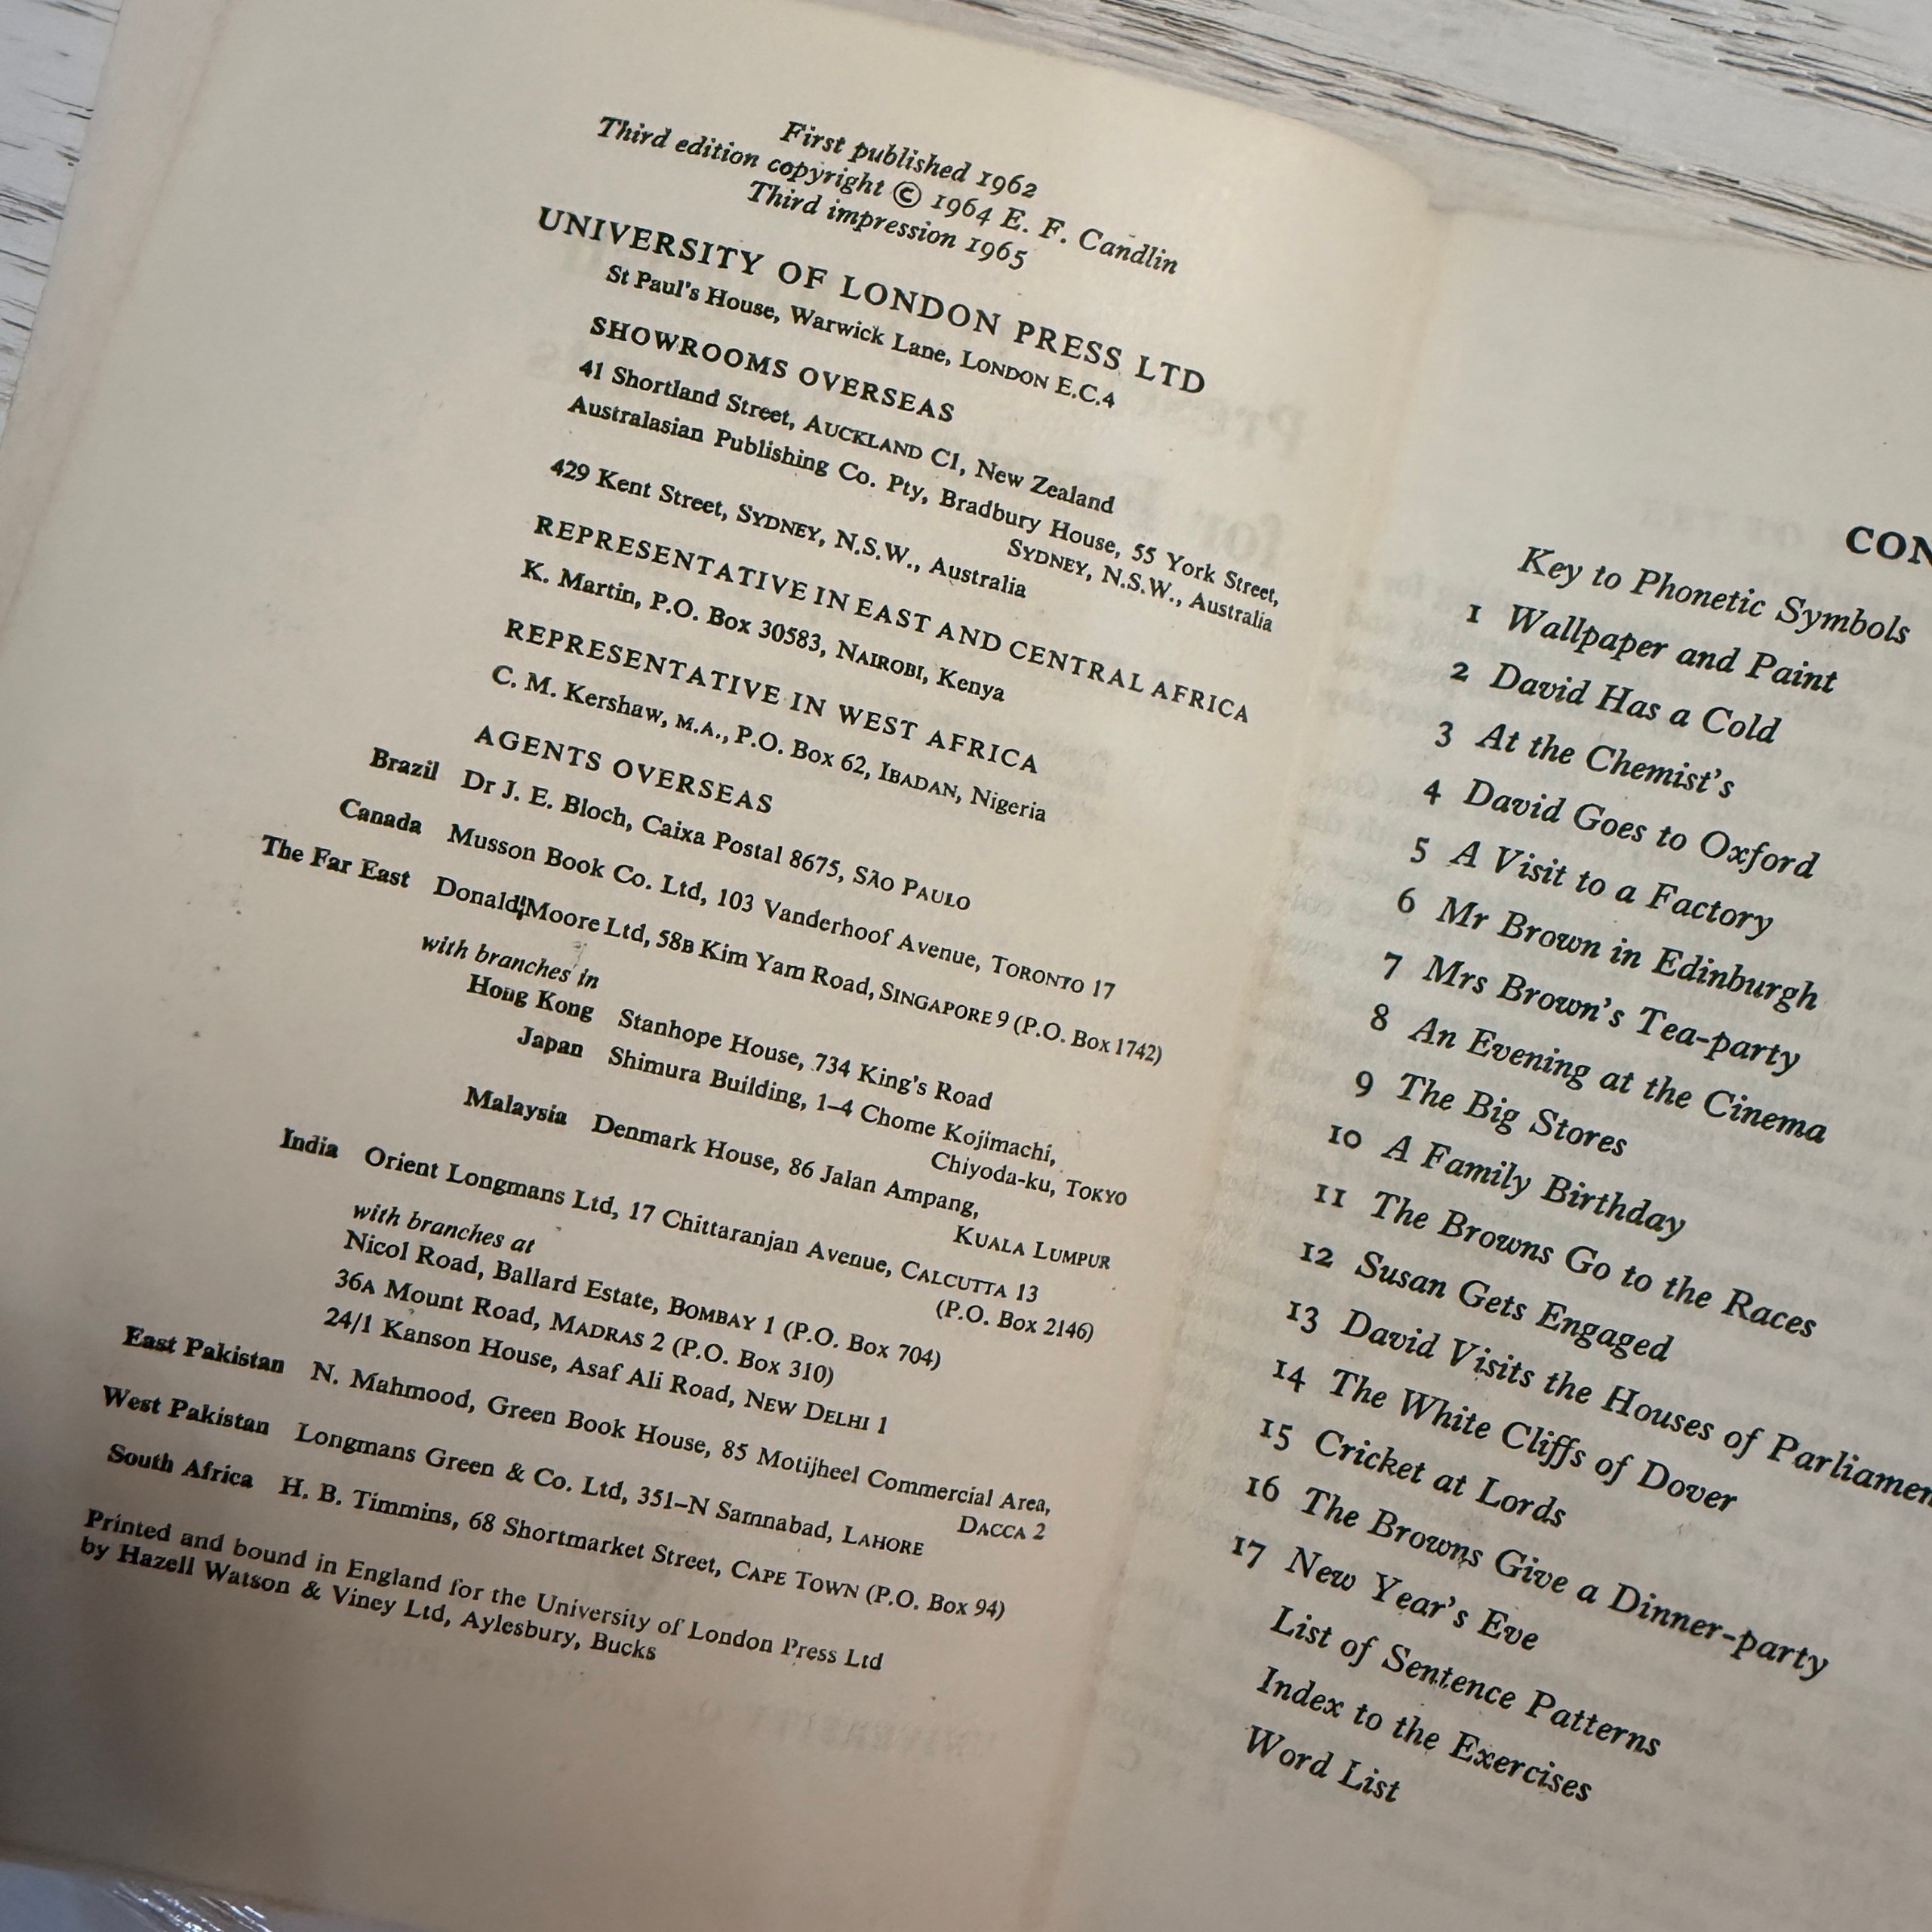 First published 1962
Third edition copyright © 1964 E. F. Candlin
Third impression 1965
UNIVERSITY OF LONDON PRESS LTD
St Paul's House, Warwick Lane, LONDON E.C.4
SHOWROOMS OVERSEAS
41 Shortland Street, AUCKLAND C1, New Zealand
Australasian Publishing Co. Pty, Bradbury House, 55 York Street,
SYDNEY, N.S.W., Australia
429 Kent Street, SYDNEY, N.S.W., Australia
REPRESENTATIVE IN EAST AND CENTRAL AFRICA
K. Martin, P.O. Box 30583, NAIROBI, Kenya
REPRESENTATIVE IN WEST AFRICA
C. M. Kershaw, M.A., P.O. Box 62, IBADAN, Nigeria
AGENTS OVERSEAS
Brazil Dr J. E. Bloch, Caixa Postal 8675, SÃO PAULO
Canada Musson Book Co. Ltd, 103 Vanderhoof Avenue, TORONTO 17
The Far East Donald Moore Ltd, 58B Kim Yam Road, SINGAPORE 9 (P.O. Box 1742)
with branches in
Hong Kong Stanhope House, 734 King's Road
Japan Shimura Building, 1–4 Chome Kojimachi,
Chiyoda-ku, TOKYO
Malaysia Denmark House, 86 Jalan Ampang,
KUALA LUMPUR
India Orient Longmans Ltd, 17 Chittaranjan Avenue, CALCUTTA 13
(P.O. Box 2146)
with branches at
Nicol Road, Ballard Estate, BOMBAY 1 (P.O. Box 704)
36A Mount Road, MADRAS 2 (P.O. Box 310)
24/1 Kanson House, Asaf Ali Road, NEW DELHI 1
East Pakistan N. Mahmood, Green Book House, 85 Motijheel Commercial Area,
DACCA 2
West Pakistan Longmans Green & Co. Ltd, 351–N Samnabad, LAHORE
South Africa H. B. Timmins, 68 Shortmarket Street, CAPE TOWN (P.O. Box 94)
Printed and bound in England for the University of London Press Ltd
by Hazell Watson & Viney Ltd, Aylesbury, Bucks
CON
Key to Phonetic Symbols
1 Wallpaper and Paint
2 David Has a Cold
3 At the Chemist's
4 David Goes to Oxford
5 A Visit to a Factory
6 Mr Brown in Edinburgh
7 Mrs Brown's Tea-party
8 An Evening at the Cinema
9 The Big Stores
10 A Family Birthday
11 The Browns Go to the Races
12 Susan Gets Engaged
13 David Visits the Houses of Parliamen
14 The White Cliffs of Dover
15 Cricket at Lords
16 The Browns Give a Dinner-party
17 New Year's Eve
List of Sentence Patterns
Index to the Exercises
Word List